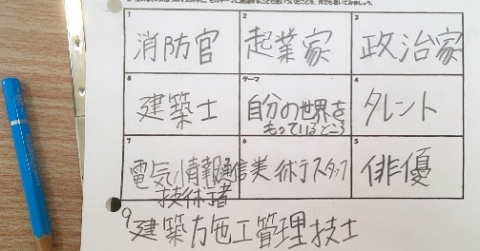 1
消防官
2
起業家
3
政治家
8
建築士
テーマ
自分の世界を
もっているところ
4
タレント
7
電気・情報通信
技術者
6
美術スタッフ
5
俳優
9
建築施工管理技士